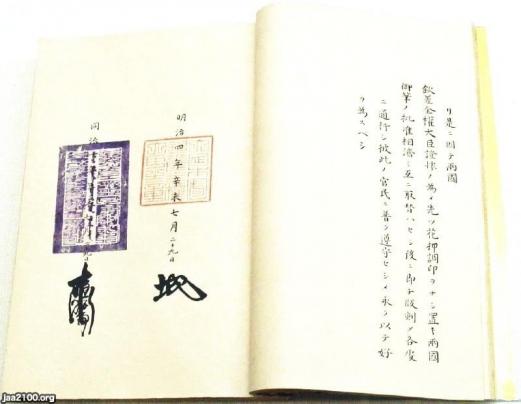 リ是ニ因テ兩國
欽差全權大臣證據ノ爲メ先ツ花押調印ヲナシ置キ兩國
御筆ノ批准相濟ミ互ニ取替ハセシ後ニ即チ版刻シ各處
ニ通行シ彼此ノ官民ニ普ク遵守セシメ永ク以テ好
ヲ爲スヘシ
明治四年辛未七月二十九日
同治
九日
jaa2100.org